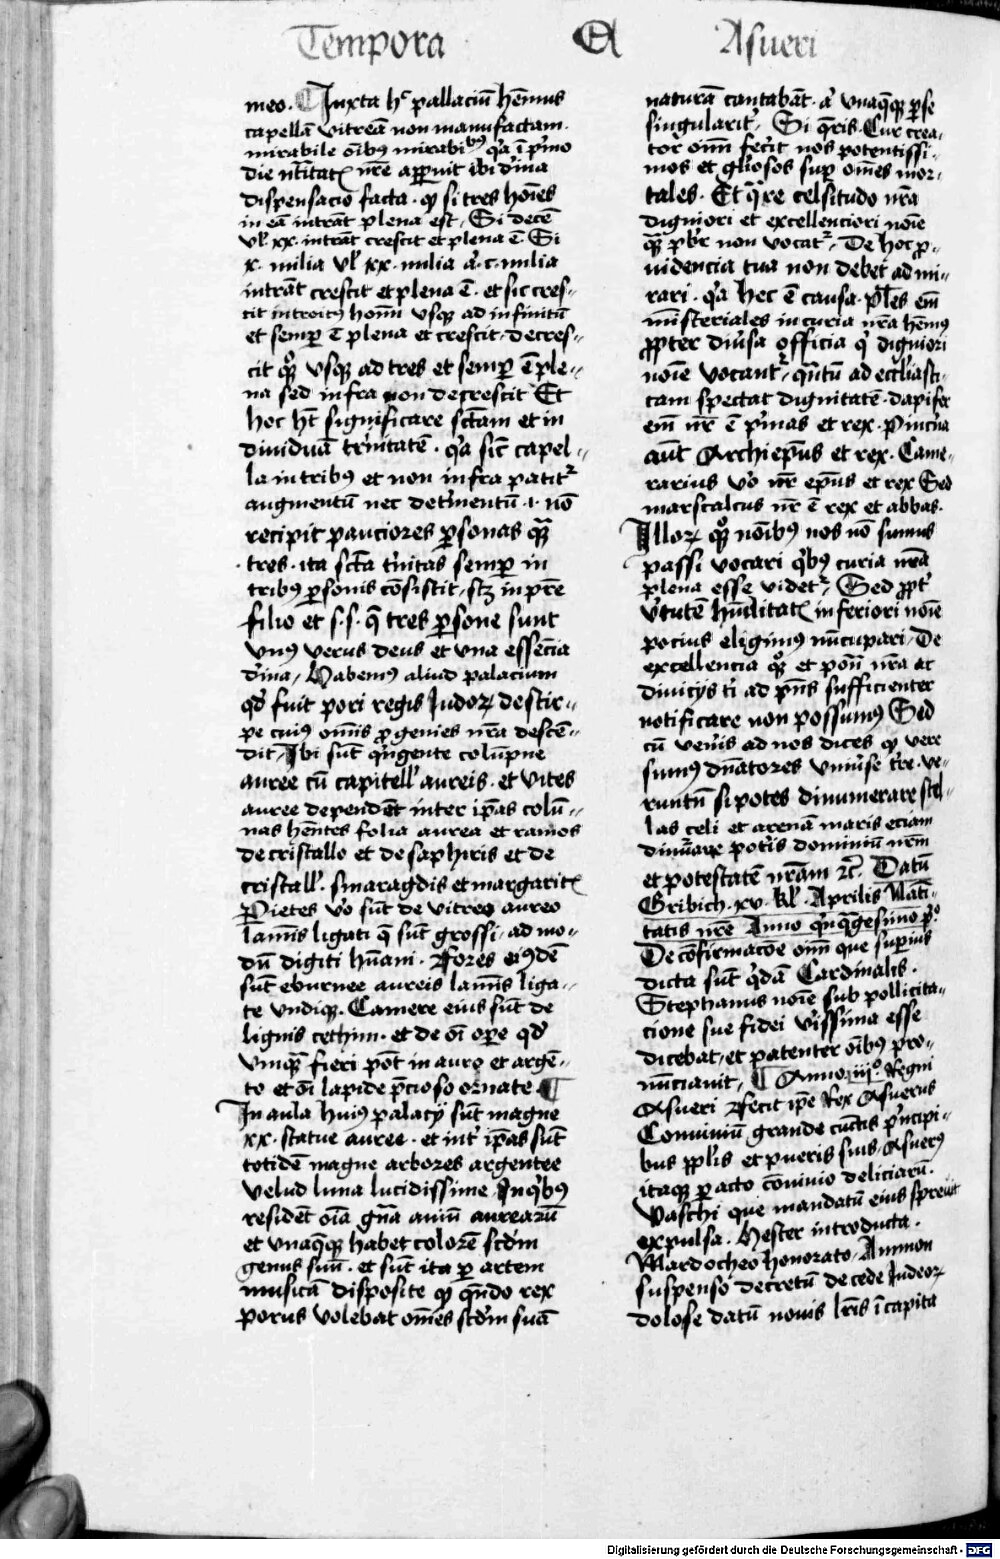 Tempora Asueri
meo. Juxta hͨ pallaciū hēmus
capellā vitreā non manufactam.
mirabile oībꝰ mirabibꝰ qͥa ī pͥmo
die nr̄e apparuit ibi dīna
dispensacio facta. ꝙ si tres hoīes
in eā intrāt plena est. Si decē
vl̓ xx. intrāt crescit et plena ē. Si
x. milia vl̓ xx. milia aͭ. c. milia
intrāt crescit et plena ē. et sic cres⸗
cit introitꝰ homī vsqꝫ ad infinitū
et semꝑ ē plena et crescit. decres⸗
cit qͦꝫ vsqꝫ ad tres et semꝑ ē ple⸗
na sed infra non decrescit Et
hoc hꝫ significare sctām et in
diuiduā trīnitatē. qͥa sic̄ capel⸗
la in tribꝰ et non infra patitᷣ
augmentū nec detͥmentū .i. nō
recipit pauciores ꝑsonas qͣꝫ
tres. ita sctā tͥnitas semꝑ in
tribꝰ ꝑsonis cōsistit, scꝫ in pr̄e
filio et s. s. qͤ tres ꝑsone sunt
vnꝰ verus deus et vna essēcia
dīna, Habemꝰ aliud palacium
qd̓ fuit pori regis Judoꝝ de stir⸗
pe cuiꝰ omīs ꝓgenies nr̄a descē⸗
dit. Ibi sūt qͥngente colūpne
auree cū capitell̓ aureis. et vites
auree dependēt inter ip̄as colū⸗
nas hēntes folia aurea et ramos
de cristallo et de saphiris et de
cristall̓. smaragdis et margaritꝭ
Pietes vͦo sūt de vitreo aureo
lamīs ligati qͤ sūt grossi, ad mo⸗
dū digiti hūani. Fores eiꝰdē
sūt eburnee aureis lamīs liga⸗
te vndiqꝫ. Camere eius sūt de
lignis cethim. et de oī oꝑe qd̓
vmqͣꝫ fieri pōt in auro et argē⸗
to et oī lapide p̄cioso ornate ¶
In aula huiꝰ palacij sūt magne
xx. statue auree. et intͥ ip̄as sūt
totidē magne arbores argentee
velud luna lucidissime, In qͥbꝰ
residēt oīa gn̄a auiū aurearū
et vnaqͤqꝫ habet colorē scd̄m
genus suū. et sūt ita ꝑ artem
musicā disposite ꝙ qn̄do rex
porus volebat om̄es scd̄m suā
naturā cantabāt. aͭ vnaqͤqꝫ ꝑ se
singularitͥ, Si qͤris. Cur crea⸗
tor oīm fecit nos potentissi⸗
mos et gl̓iosos suꝑ om̄es mor⸗
tales. Et qͣre celsitudo nr̄a
digniori et excellenciori noīe
qͣꝫ pbr̄ non vocatᷣ. De hoc ꝓ⸗
uidencia tua non debet admi⸗
rari. qͥa hec ē causa. pl̄es em̄
misteriales in curia nr̄a hēmꝰ
ꝓpter diūsa officia qͥ digniori
noīe vocantᷣ, qͣntū ad eccl̓iasti⸗
cam spectat dignitatē. dapifer
em̄ nr̄ ē pͥmas et rex. Pincͥna
aūt Archiep̄us et rex. Came⸗
rarius vͦo nr̄ ep̄us et rex Sed
marscalcus nr̄ ē rex et abbas.
Illoꝝ qͦꝫ noībꝰ nos nō sumus
passi vocari qͥbꝰ curia nr̄a
plena esse videtᷣ, Sed ꝓptͥ
vͥtutē hūilitatꝭ inferiori noīe
pocius eligimꝰ nūcupari, De
excellencia qͦꝫ et potn̄ nr̄a ac
diuicijs tͥ ad p̄ns sufficienter
notificare non possumꝰ Sed
cū veneris ad nos dices ꝙ vere
sumꝰ dn̄atores vniūse tr̄e. ve⸗
runtn̄ si potes dinumerare stel⸗
las celi et arenā maris eciam
dinūare potͥis dominiū nr̄m
et potestatē nr̄am ⁊c̄. Datū
Gribich. xv. kl̓. Aprilis Nati⸗
tatis nr̄e Anno qͥnqͣgesimo pͦ
De cōfirmacōe oīm que suꝑius
dicta sūt qͥdā Cardinalis.
Stephanus noīe sub pollicita⸗
cione sue fidei vͥissima esse
dicebat, et patenter oībꝰ pro⸗
nūciauit, ¶ Anno iijͦ. Regni
Asueri Fecit ip̄e Rex Asuerus
Conuiuiū grande cūctis pͥncipi⸗
bus ppl̓is et pueris suis, Asuerꝰ
itaqꝫ ꝑacto cōuiuio deliciarū.
Vaschi que mandatū eius spreuit
expulsa. Hester introducta.
Mardocheo honorato, Ammon
suspenso decretū de cede Iudeoꝝ
dolose datū nouis lr̄is ī capita
Digitalisierung gefördert durch die Deutsche Forschungsgemeinschaft - DFG